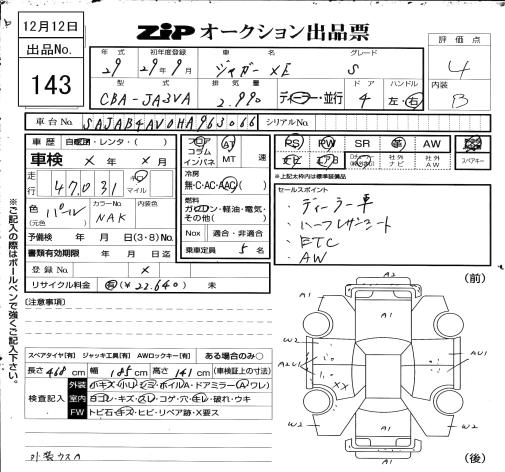 12月12日
ZiP オークション出品票
出品No.
143
年式 初年度登録 車名 グレード
29 29年9月 ジャガー XE S
型式 排気量 ドア ハンドル
CBA-JA3VA 2.990 ディーラー・並行 4 左・右
評価点
4
内装
B
車台No. SAJAB4AV0HA963066 シリアルNo.
車歴 自家用・レンタ・( )
車検 × 年 × 月
フロア コラム インパネ AT MT 速
走行 47,031 キロ マイル
冷房
無・C・AC・AAC( )
色 (元色) パール カラーNo. NAK 内装色
燃料
ガソリン・軽油・電気・その他( )
予備検 年 月 日(3・8)No.
Nox 適合・非適合
書類有効期限 年 月 日迄
乗車定員 5 名
登録No. ×
リサイクル料金 有(¥22,640) 未
PS PW SR 革 AW
ナビ エアB 社外ナビ 社外AW スペアキー
*上記太枠内は標準装備品
セールスポイント
・ディーラー車
・ハーフレザーシート
・ETC
・AW
[注意事項]
スペアタイヤ[有] ジャッキ工具[有] AWロックキー[有] ある場合のみ○
長さ 468 cm 幅 185 cm 高さ 141 cm (車検証上の寸法)
検査記入
外装 小キズ・小凹・シミ・ホイルA・ドアミラー(A・ワレ)
室内 ヨゴレ・キズ・スレ・コゲ・穴・キレ・破れ・ウキ
FW トビ石・キズ・ヒビ・リペア跡・X要ス
外装ウスA
※ご記入の際はボールペンで強くご記入下さい。
(前)
A2
A1
A1
A1
W2
W2
A2U1
AU1
XX
W2
W2
A1
A1
(後)